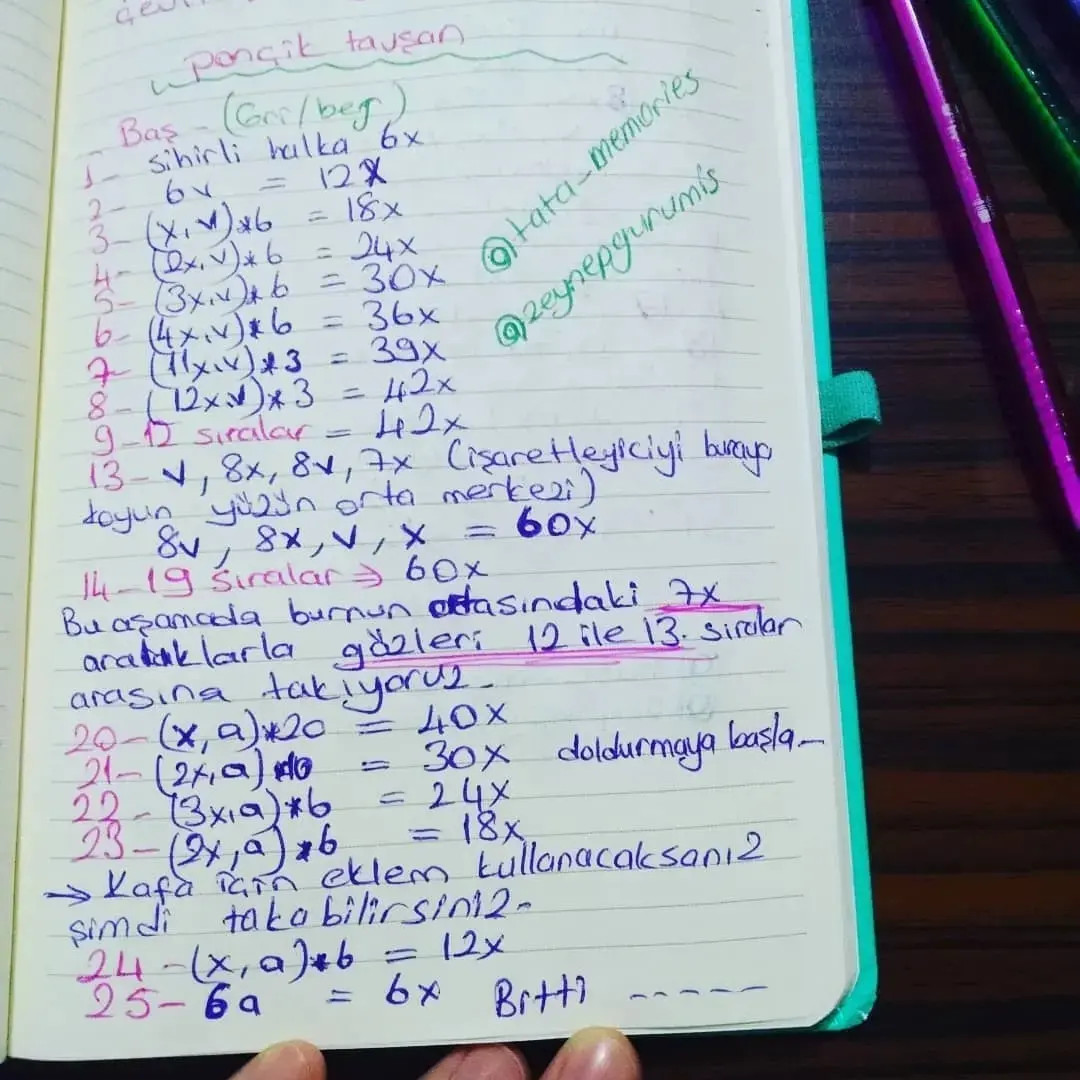 ponçik tavşan
Baş - (Gri/bej)
1- sihirli halka 6x
2- 6v = 12x
3- (x,v)*6 = 18x
4- (2x,v)*6 = 24x
5- (3x,v)*6 = 30x
6- (4x,v)*6 = 36x
7- (11x,v)*3 = 39x
8- (12x,v)*3 = 42x
9-12 sıralar = 42x
13- v, 8x, 8v, 7x (işaretleyiciyi buraya
koyun yüzün orta merkezi)
8v, 8x, v, x = 60x
14-19 sıralar ⇒ 60x
Bu aşamada burnun ortasındaki 7x
aralıklarla gözleri 12 ile 13. sıraları
arasına takıyoruz.
20- (x, a)*20 = 40x
21- (2x,a)*10 = 30x doldurmaya başla-
22- (3x,a)*6 = 24x
23- (2x,a)*6 = 18x
→ Kafa için eklem kullanacaksanız
şimdi takabilirsiniz-
24- (x, a)*6 = 12x
25- 6a = 6x Bitti -----
@tata_memories
@zeynepgurumis